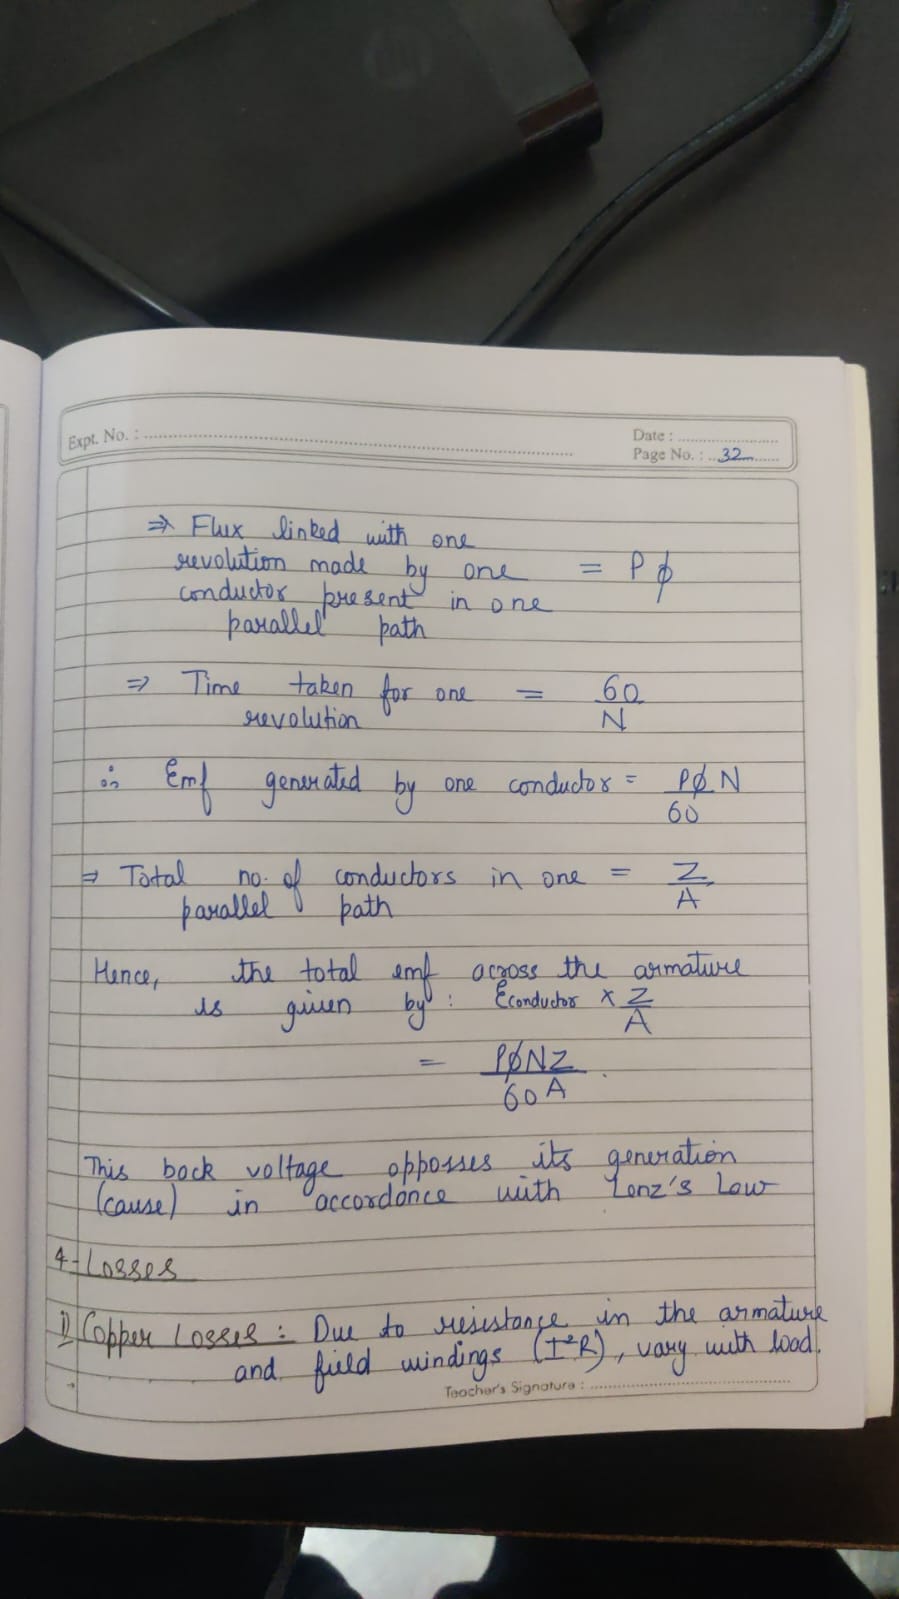 Expt. No. :
Date :
Page No. : 32
⇒ Flux linked with one
revolution made by one = Pϕ
conductor present in one
parallel path
⇒ Time taken for one = 60/N
revolution
∴ Emf generated by one conductor = PϕN/60
⇒ Total no. of conductors in one = Z/A
parallel path
Hence, the total emf across the armature
is given by : Econductor × Z/A
= PϕNZ/60A
This back voltage opposses its generation
(cause) in accordance with Lenz's Law
4- Losses
1) Copper Losses : Due to resistance in the armature
and field windings (I²R), vary with load.
Teacher's Signature :